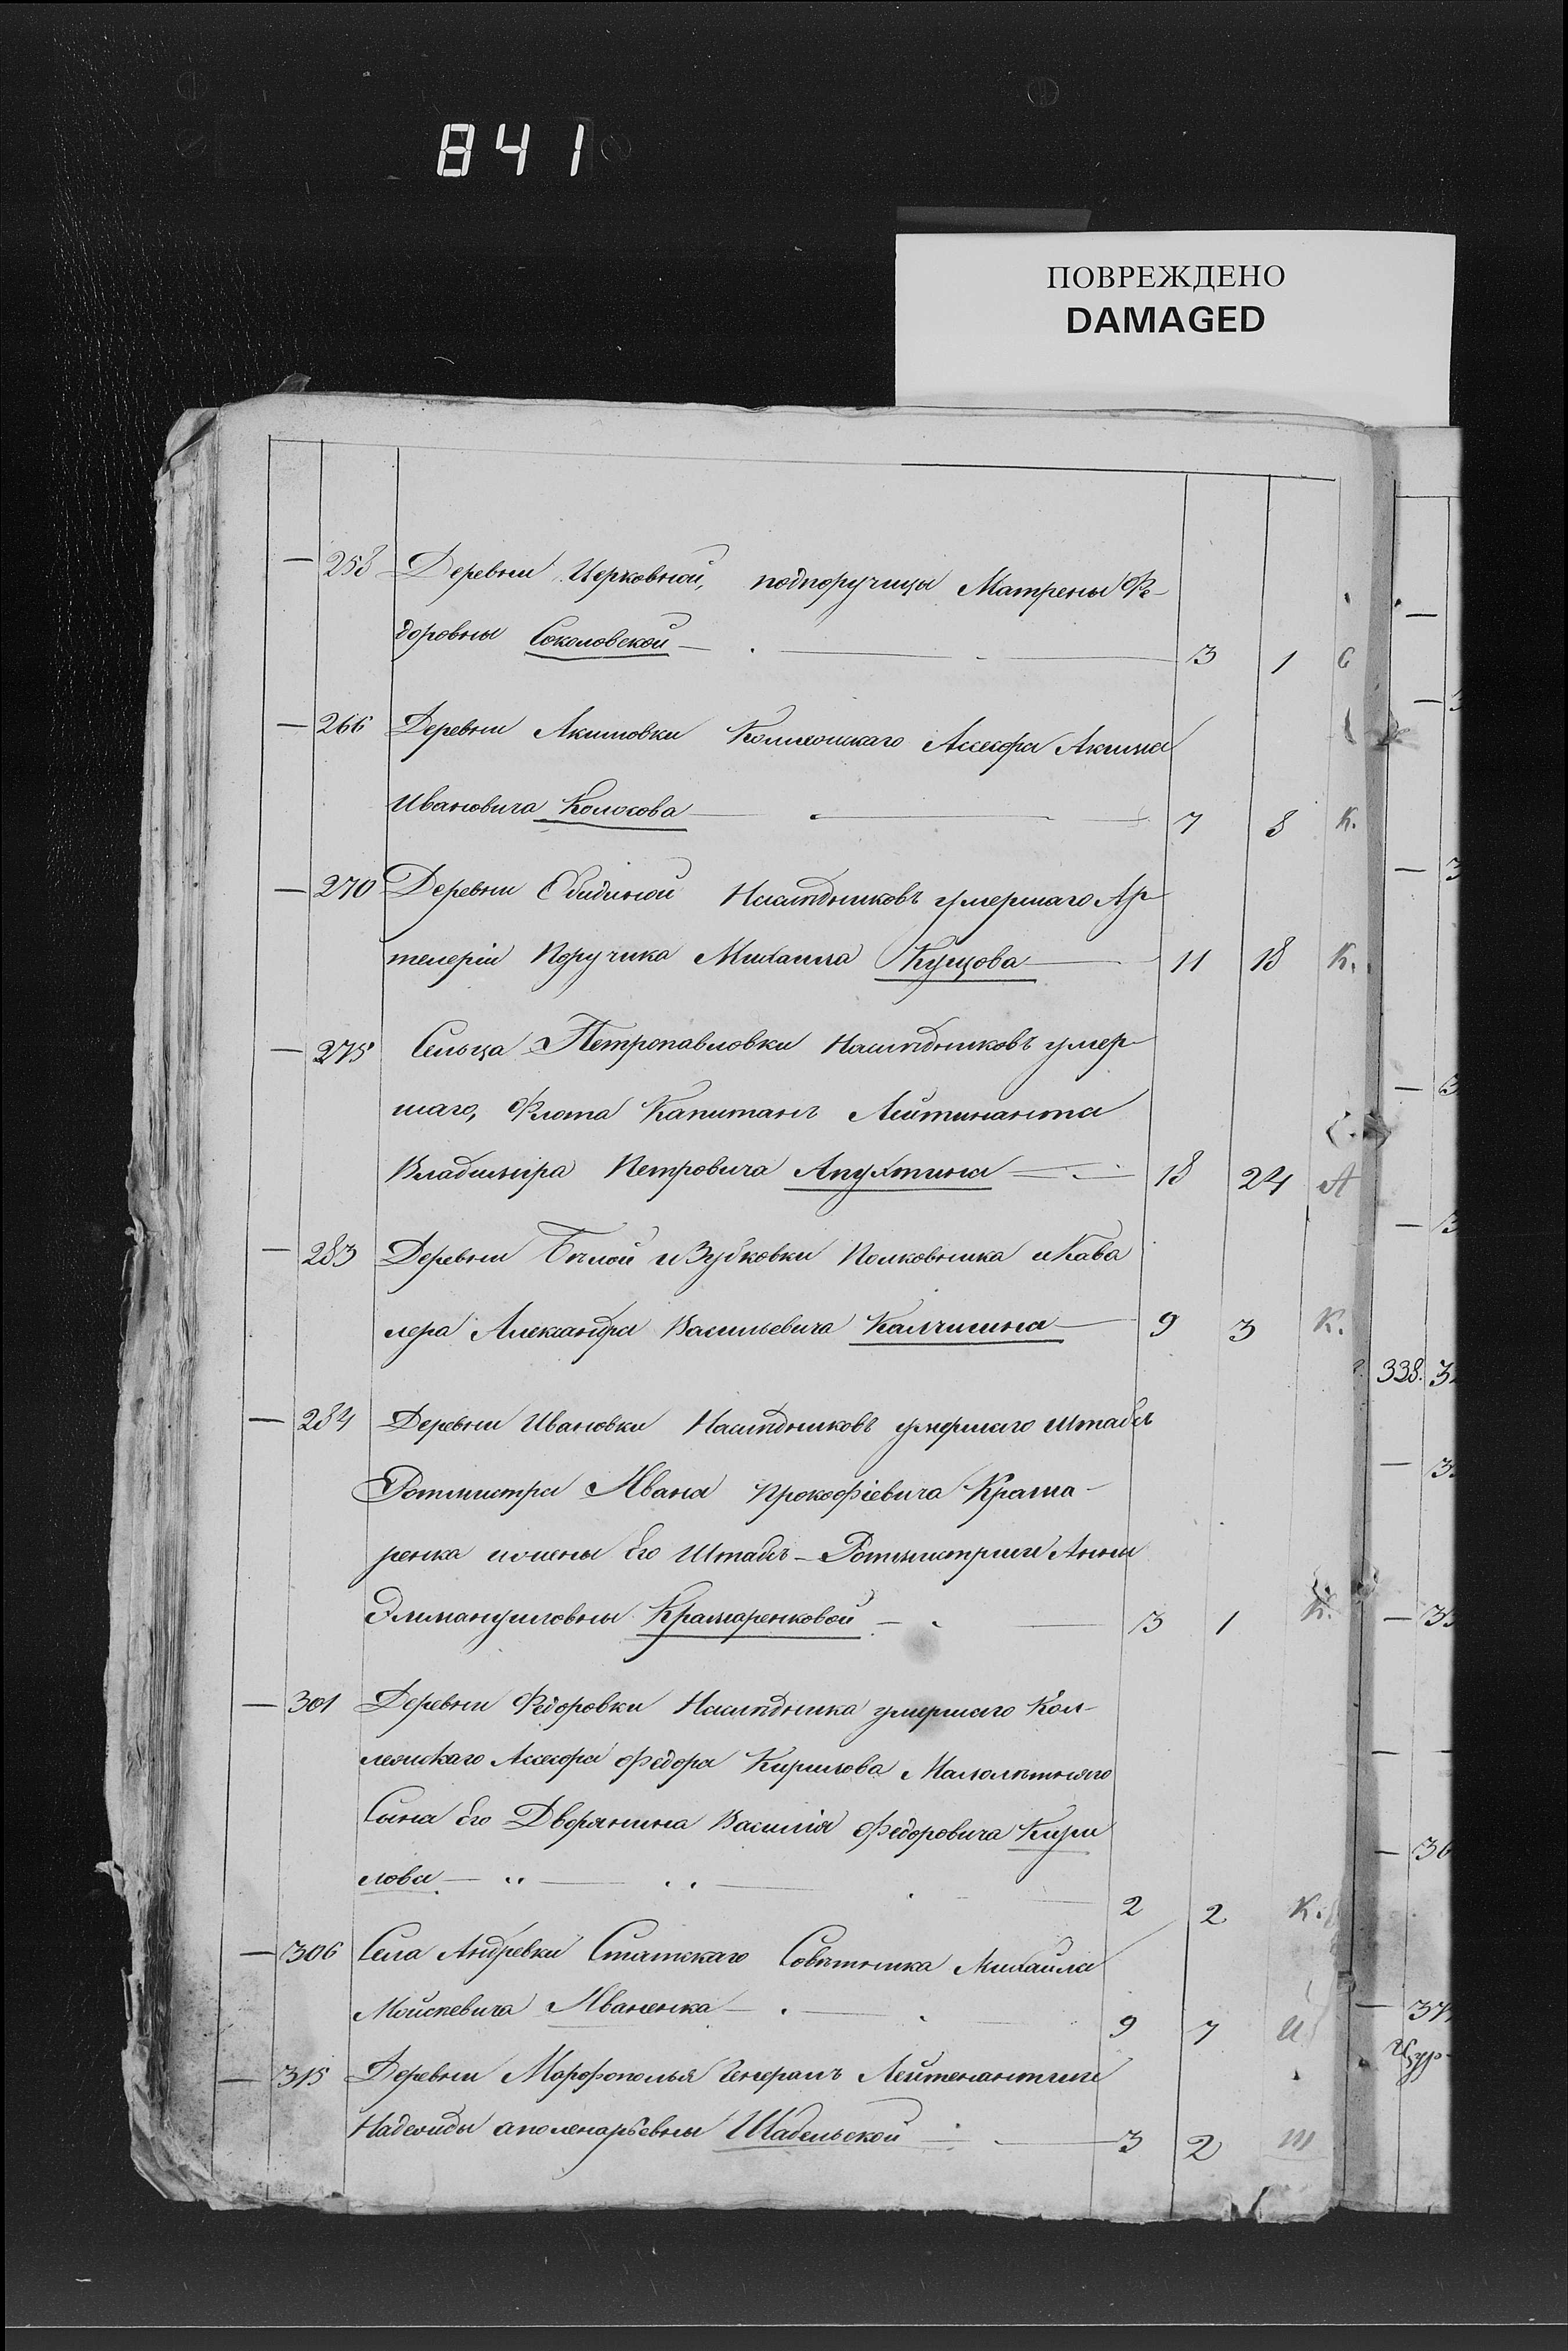 841
ПОВРЕЖДЕНО
DAMAGED
— 258 Деревни Церковной, подпоручицы Матрены Фе-
доровны Соколовской — 3 1 С
— 266 Деревни Акимовки Коллежскаго Ассесора Акима
Ивановича Колосова — 7 8 К.
— 270 Деревни Наслѣдниковъ умершаго Ар-
телеріи Поручика Михаила Купцова — 11 18 К.
— 275 Сельца Петропавловки Наслѣдниковъ умер-
шаго, Флота Капитанъ Лейтинанта
Владимира Петровича Апухтина — 18 24 А
— 283 Деревни Бѣлой и Зубковки Полковника и Кава
лера Александра Васильевича Калчигина — 9 3 К.
338.
— 284 Деревни Ивановки Наслѣдниковъ умершаго Штабъ
Ротмистра Ивана Прокофіевича Крама-
ренка жены Его Штабъ-Ротмистрши Анны
Эммануиловны Крамаренковой — 3 1 К.
— 301 Деревни Федоровки Наслѣдника умершаго Кол-
лежскаго Ассесора Федора Кирилова Малолѣтняго
Сына Его Дворянина Василія Федоровича Кири
лова — 2 2 К.
— 306 Села Андревки Статскаго Совѣтника Михайла
Мойсѣевича Иваненка — 9 7 И
— 315 Деревни Марфополья Генералъ Лейтенантши
Надежды аполенарьевны Шабельской — 3 2 Ш